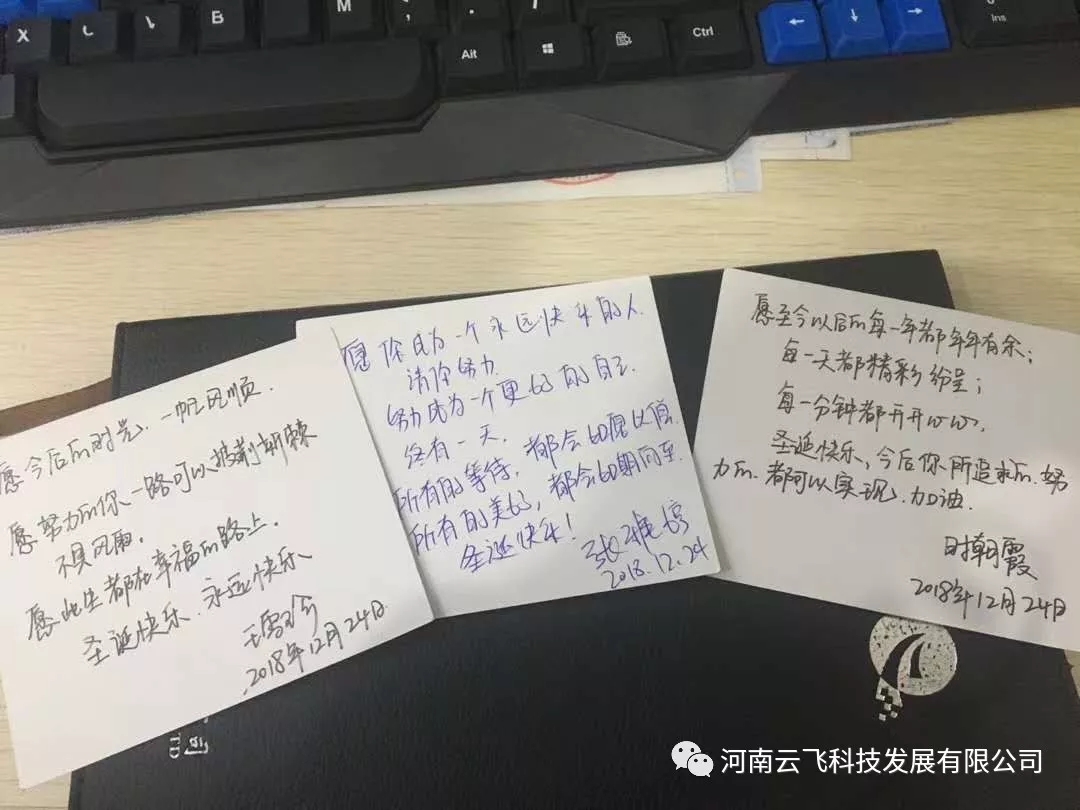 X
B
M
Alt
Ctrl
Ins
愿今后的时光,一帆风顺.
愿努力的你一路可以披荆斩棘
不惧风雨。
愿此生都在幸福的路上.
圣诞快乐.永远快乐
2018年12月24日
愿你成为一个永远快乐的人.
请你努力.
努力成为一个更好的自己.
终有一天.
所有的等待,都会如愿以偿.
所有的美好,都会如期而至.
圣诞快乐!
张雅婷
2018.12.24
愿至今以后的每一年都年年有余;
每一天都精彩纷呈;
每一分钟都开开心心.
圣诞快乐,今后你所追求的.努
力的.都可以实现.加油.
时朝霞
2018年12月24日
TD
河南云飞科技发展有限公司